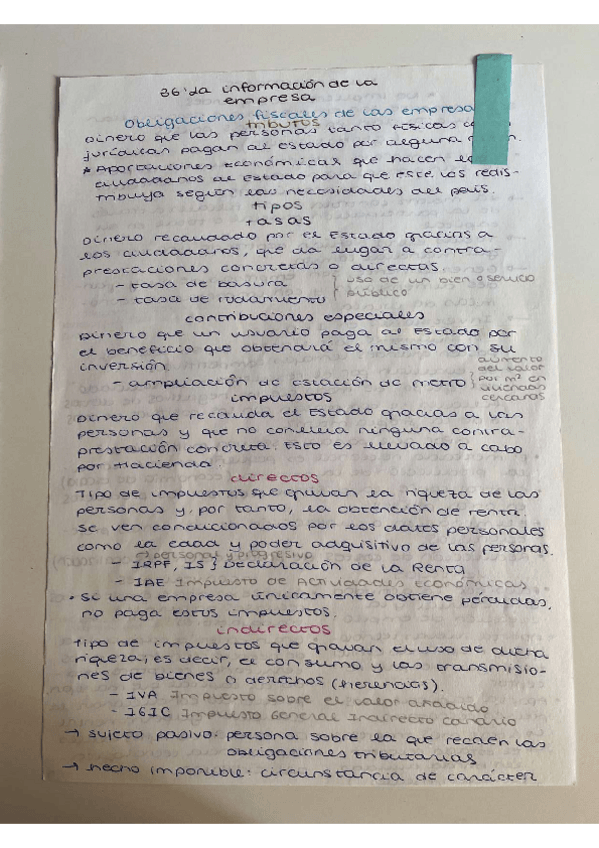 36: La información de la
empresa
Obligaciones fiscales de las empresa
tributos
Dinero que las personas tanto físicas
jurídicas pagan al estado por alguna
* Aportaciones económicas que hacen
ciudadanos al Estado para que este los redis-
tribuya según las necesidades del país.
tipos
tasas
Dinero recaudado por el Estado gracias a
los ciudadanos, que da lugar a contra-
prestaciones concretas o directas
- tasa de basura } uso de un bien o servicio
- tasa de rodamiento } público
contribuciones especiales
Dinero que un usuario paga al Estado por
el beneficio que obtendrá él mismo con su
inversión.
- ampliación de estación de metro } aumento
del valor
por m² en
viviendas
cercanas
impuestos
Dinero que recauda el Estado gracias a las
personas y que no conlleva ninguna contra-
prestación concreta. Esto es llevado a cabo
por Hacienda.
directos
Tipo de impuestos que gravan la riqueza de las
personas y, por tanto, la obtención de renta.
Se ven condicionados por los datos personales
como la edad y poder adquisitivo de las personas.
personal y progresivo
- IRPF, IS } Declaración de la Renta
- IAE Impuesto de Actividades Económicas
· Si una empresa únicamente obtiene pérdidas,
no paga estos impuestos.
indirectos
Tipo de impuestos que gravan el uso de dicha
riqueza, es decir, el consumo y las transmisio-
nes de bienes o derechos (herencias).
- IVA Impuesto sobre el valor añadido
- IGIC Impuesto General Indirecto Canario
→ sujeto pasivo: persona sobre la que recaen las
obligaciones tributarias
→ hecho imponible: circunstancia de carácter